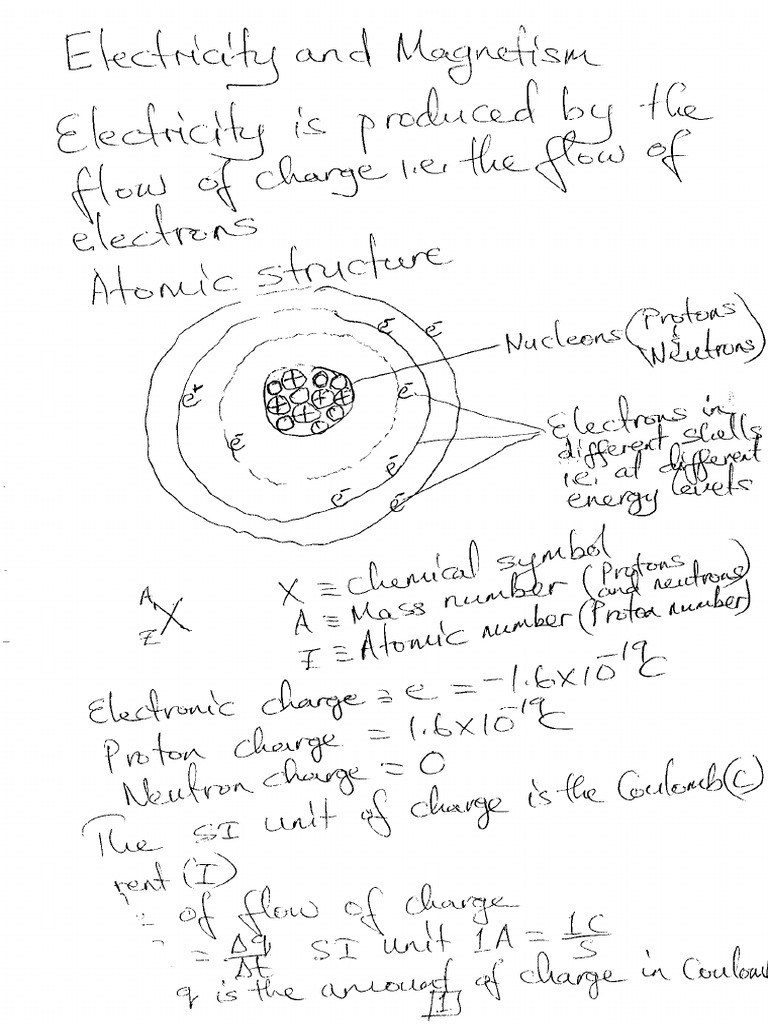 Electricity and Magnetism
Electricity is produced by the
flow of charge i.e. the flow of
electrons
Atomic structure
e⁻ e⁻
Nucleons (Protons
& Neutrons)
e⁺
e⁻
e⁻
Electrons in
different shells
i.e. at different
energy levels
e⁻
e⁻ e⁻
X ≡ chemical symbol
A ≡ Mass number (Protons
and neutrons)
Z ≡ Atomic number (Proton number)
A
X
Z
Electronic charge = e = -1.6×10⁻¹⁹C
Proton charge = 1.6×10⁻¹⁹C
Neutron charge = 0
The SI unit of charge is the Coulomb (C)
rent (I)
= of flow of charge
= Δq/Δt SI unit 1A = 1C/S
q is the amount of charge in Coulom
[1]